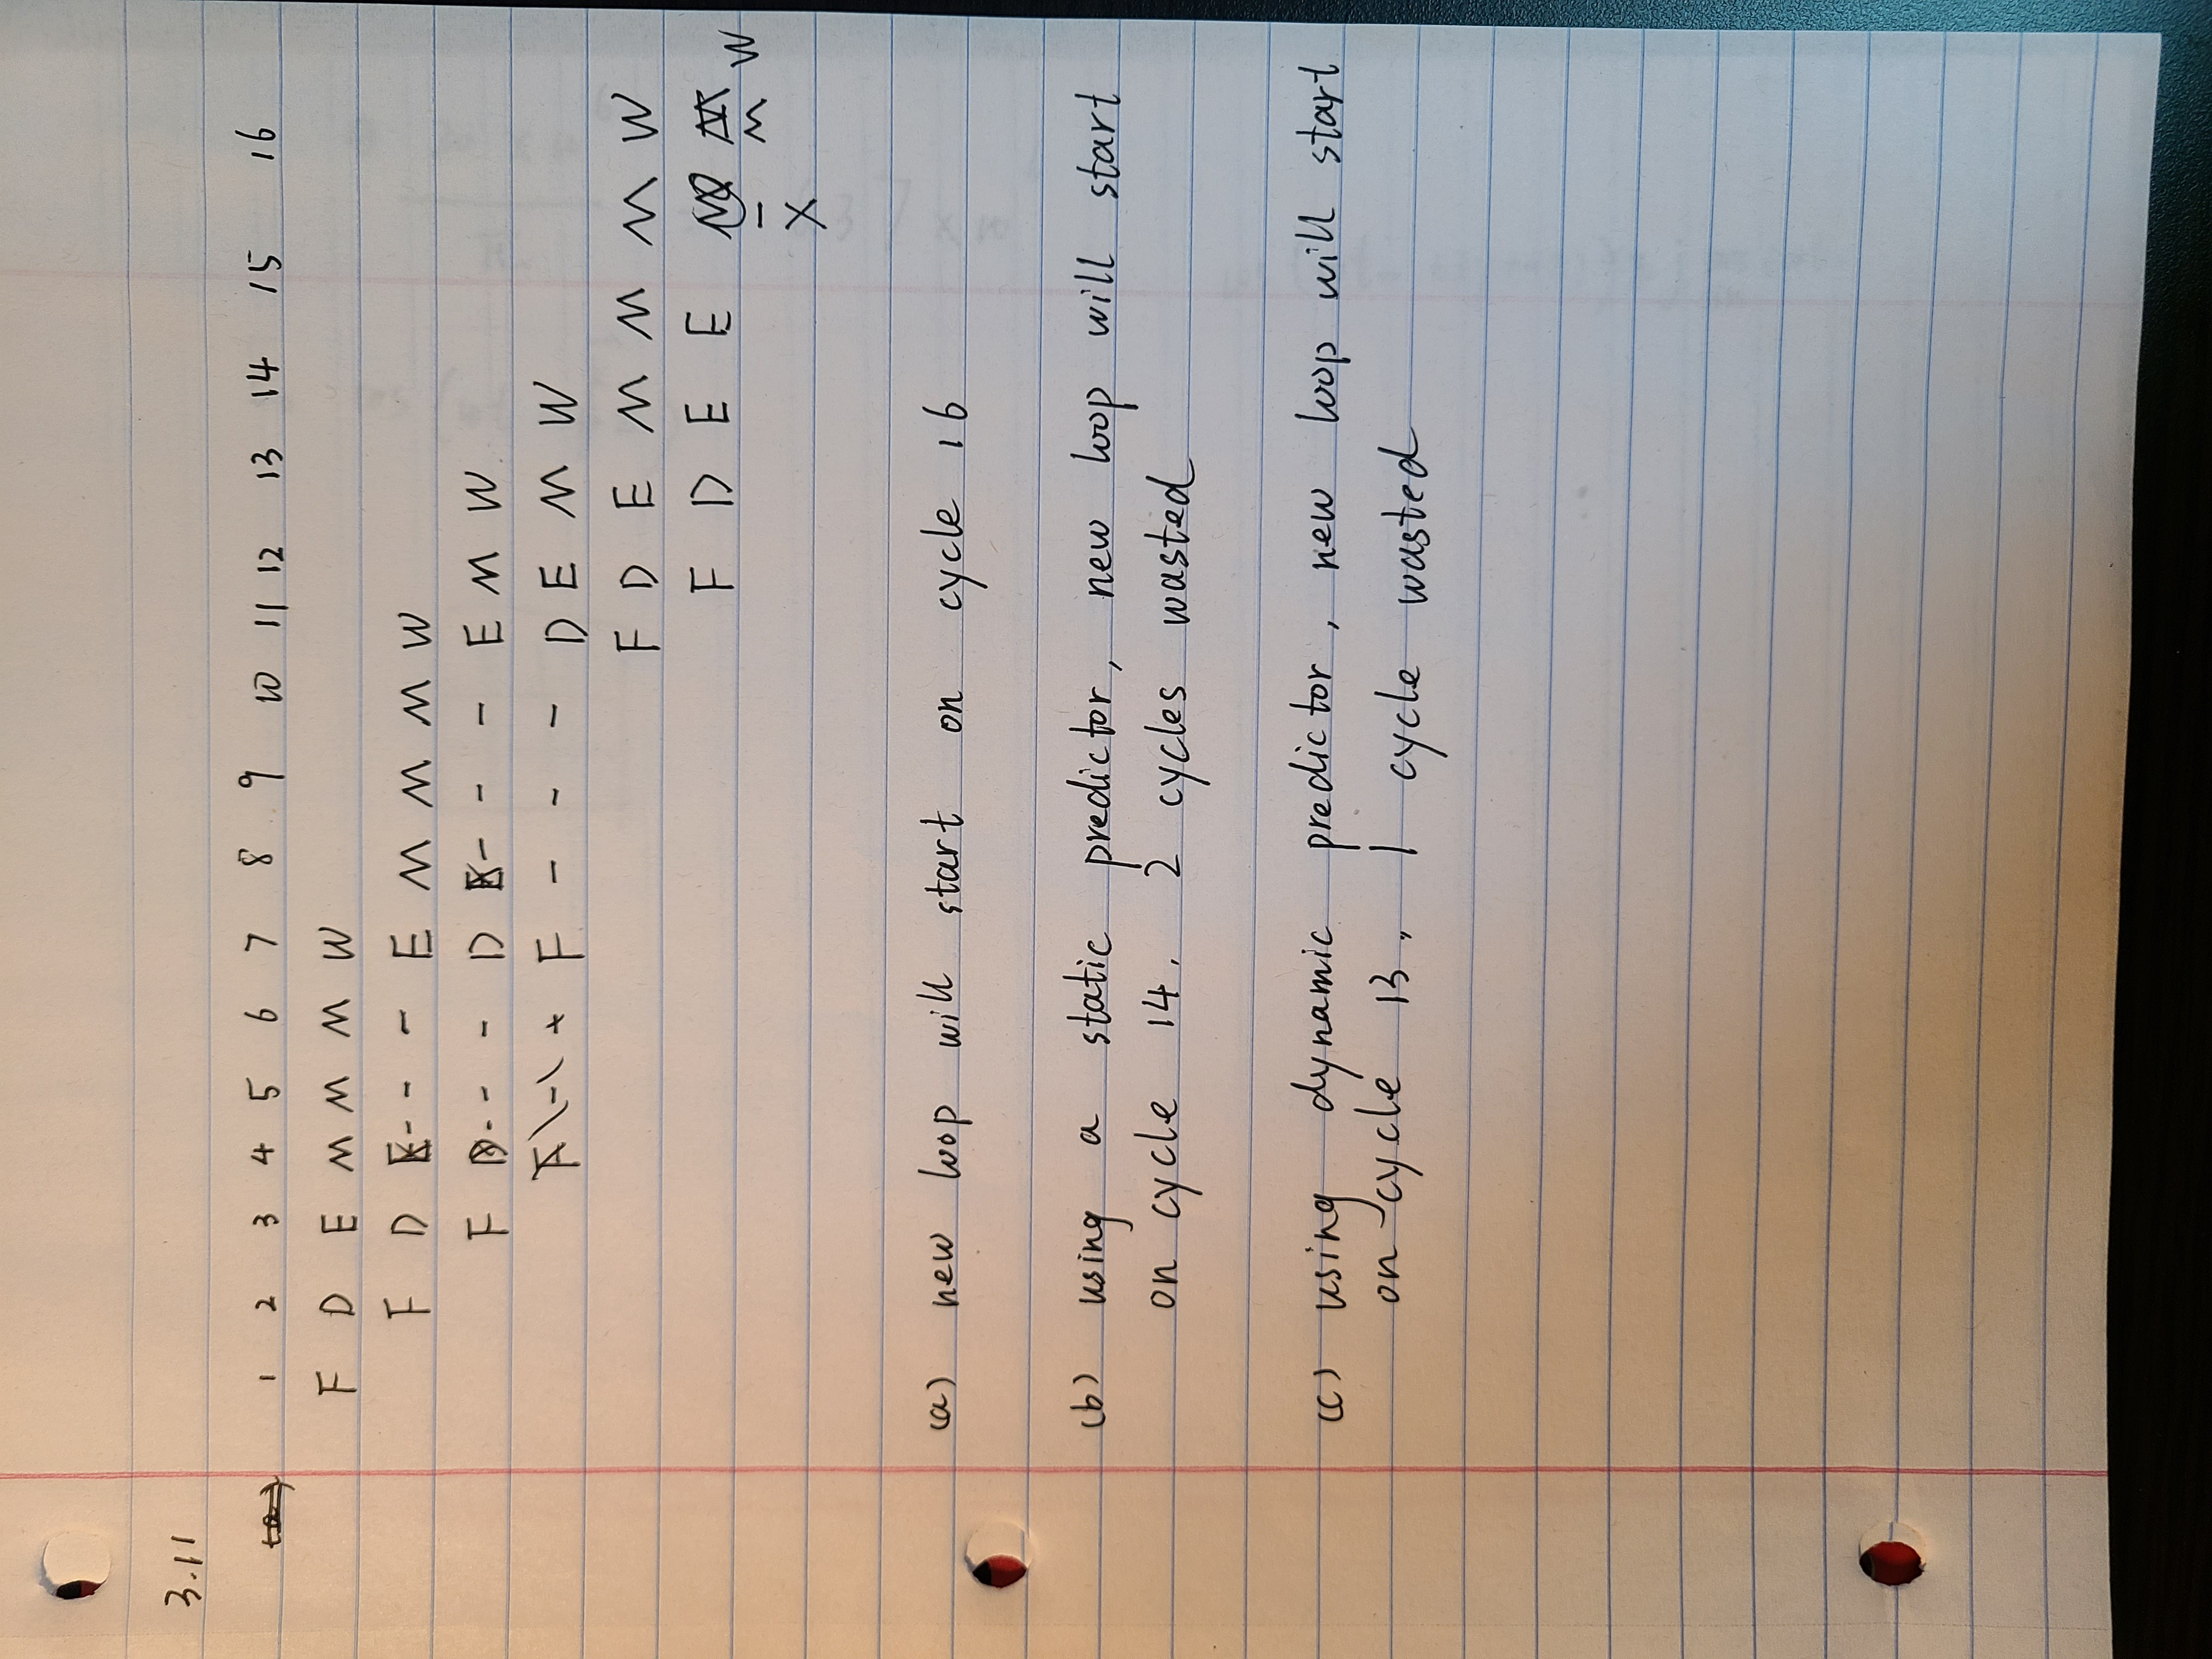 3.11
(a) 1 2 3 4 5 6 7 8 9 10 11 12 13 14 15 16
F D E M M M W
F D E - - - E M M M W
F D - - - D E - - - E M W
F \ - \ + F - - - D E M W
F D E M M M W
F D E E M M
- M W
X
(a) new loop will start on cycle 16
(b) using a static predictor, new loop will start
on cycle 14. 2 cycles wasted
(c) using dynamic predictor, new loop will start
on cycle 13. 1 cycle wasted